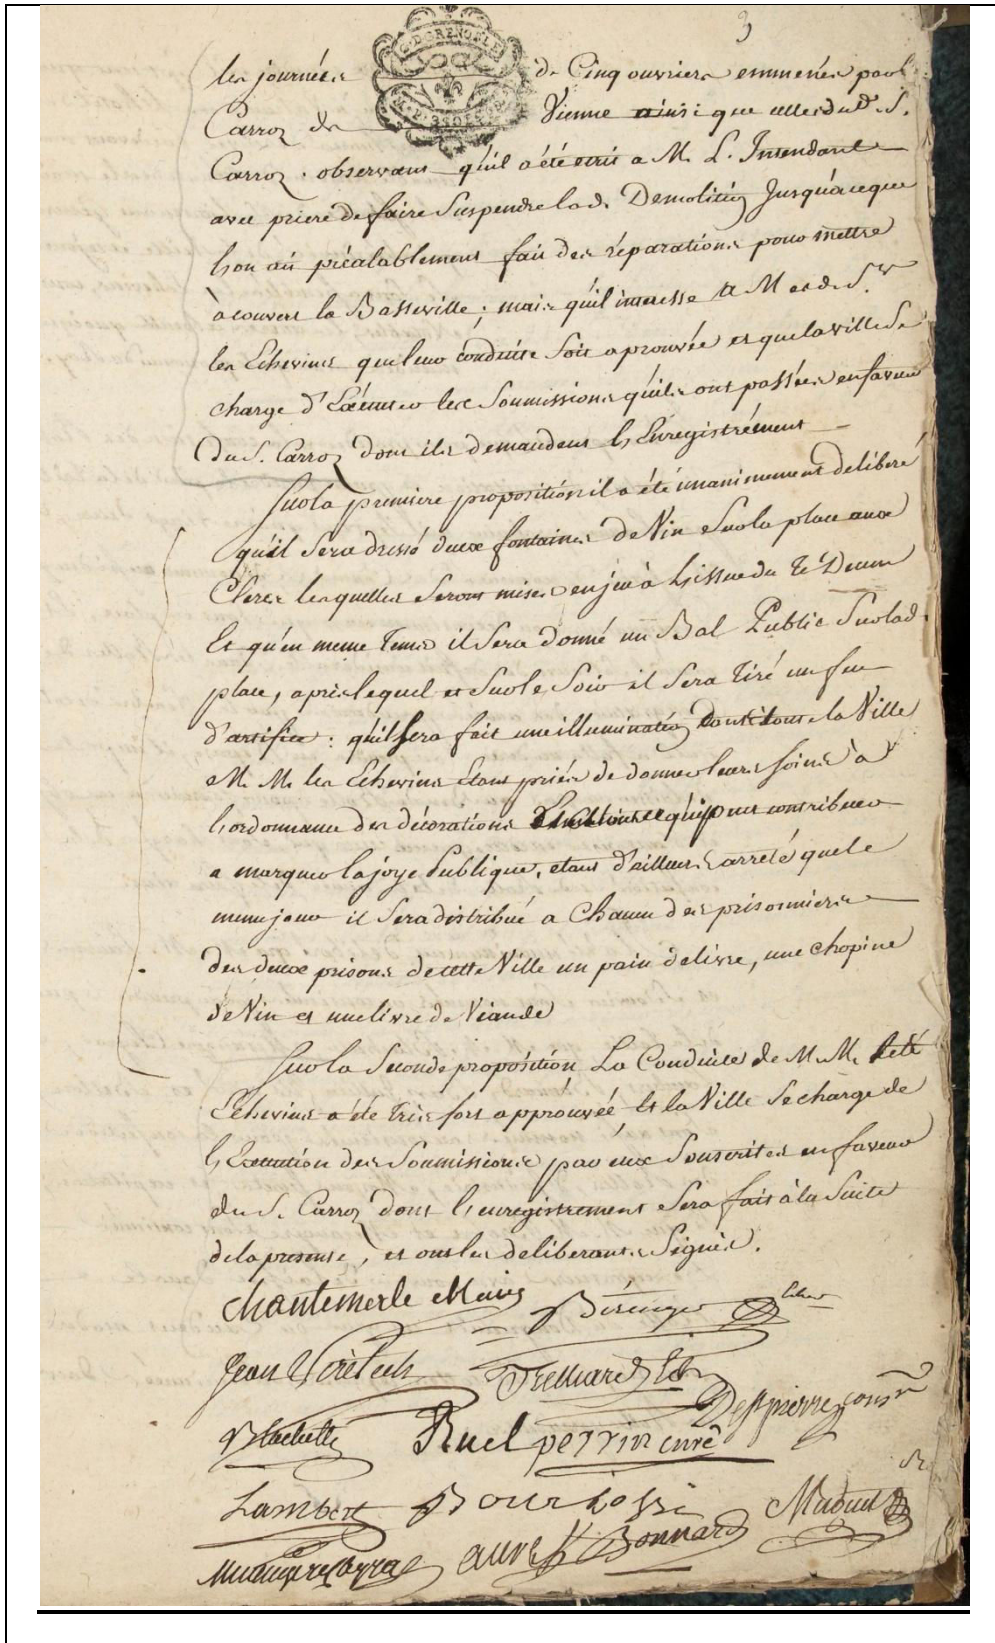 3
G. D. GRENOBLE
les journées de Cinq ouvriers emmenés par le
Carroz de Vienne ainsi que celles du d. S.
Carroz. observans qu'il a été écrit a M. L. Intendant
avec priere de faire Suspendre lad. Demolition Jusqu'a ceque
lon ait préalablement fait des réparations pour mettre
à couvert la Basse ville; mais qu'il interesse a M es d. Srs
les Echevins que leur conduite Soit aprouvée et que la ville Se
charge d'Exécuter les Soumissions qu'ils ont passées en faveur
du S. Carroz dont ils demandent l'Enregistrément
Sur la premiere proposition il a été unanimement deliberé
qu'il Sera dressé deux fontaines de Vin Sur la place aux
Clercs lesquelles Seront mises en jeu à l'issue du Te Deum
Et qu'en meme Tems il Sera donné un Bal Public Sur lad.
place, après lequel et Sur le Soir il Sera Tiré un feu
d'artifice: qu'il Sera fait une illumination dans toute la Ville
M. M. les Echevins Etans priés de donner leurs soins à
l'ordonnance des décorations qui peut contribuer
a marquer la joye Publique, etant d'ailleurs arreté que le
meme jour il Sera distribué a Chacun des prisonniers
des deux prisons de cette Ville un pain de livre, une chopine
de Vin et une livre de Viande
Sur la Seconde proposition La Conduite de M. M. les
Echevins a été Tres fort approuvée Et la Ville Se charge de
l'Execution des Soumissions par eux Souscrites en faveur
du S. Carroz dont l'enregistrement Sera fait à la Suite
de la presente, et ont les deliberants Signés.
Chantemerle Maire Bérenger Echev
Jean
Treillard
Blachette Ruel perrin curé Despierre consr
Lambert Bourbossi Muduel
Bonnard